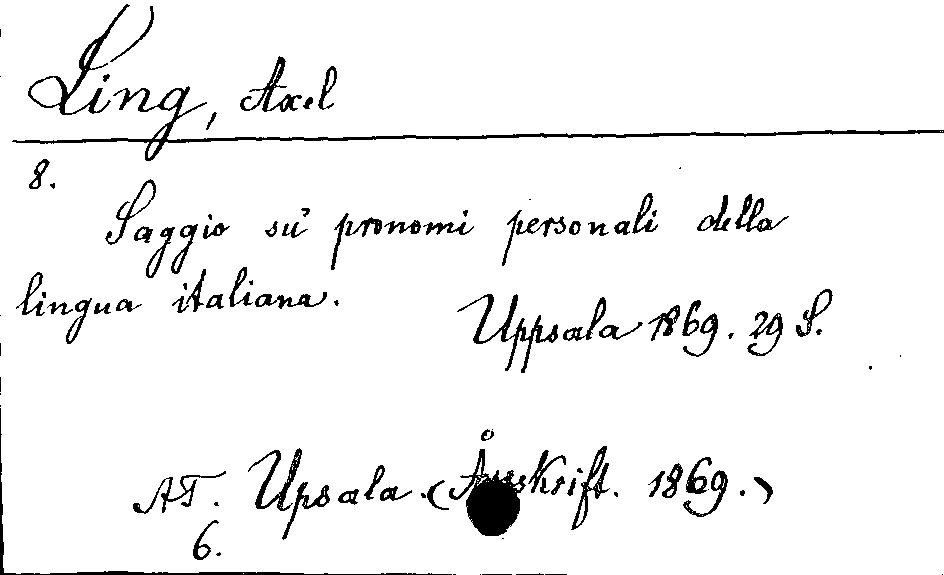 Ling, Axel
8.
Saggio su' pronomi personali della
lingua italiana.
Uppsala 1869. 29 S.
AT. Upsala (Årsskrift. 1869.)
6.